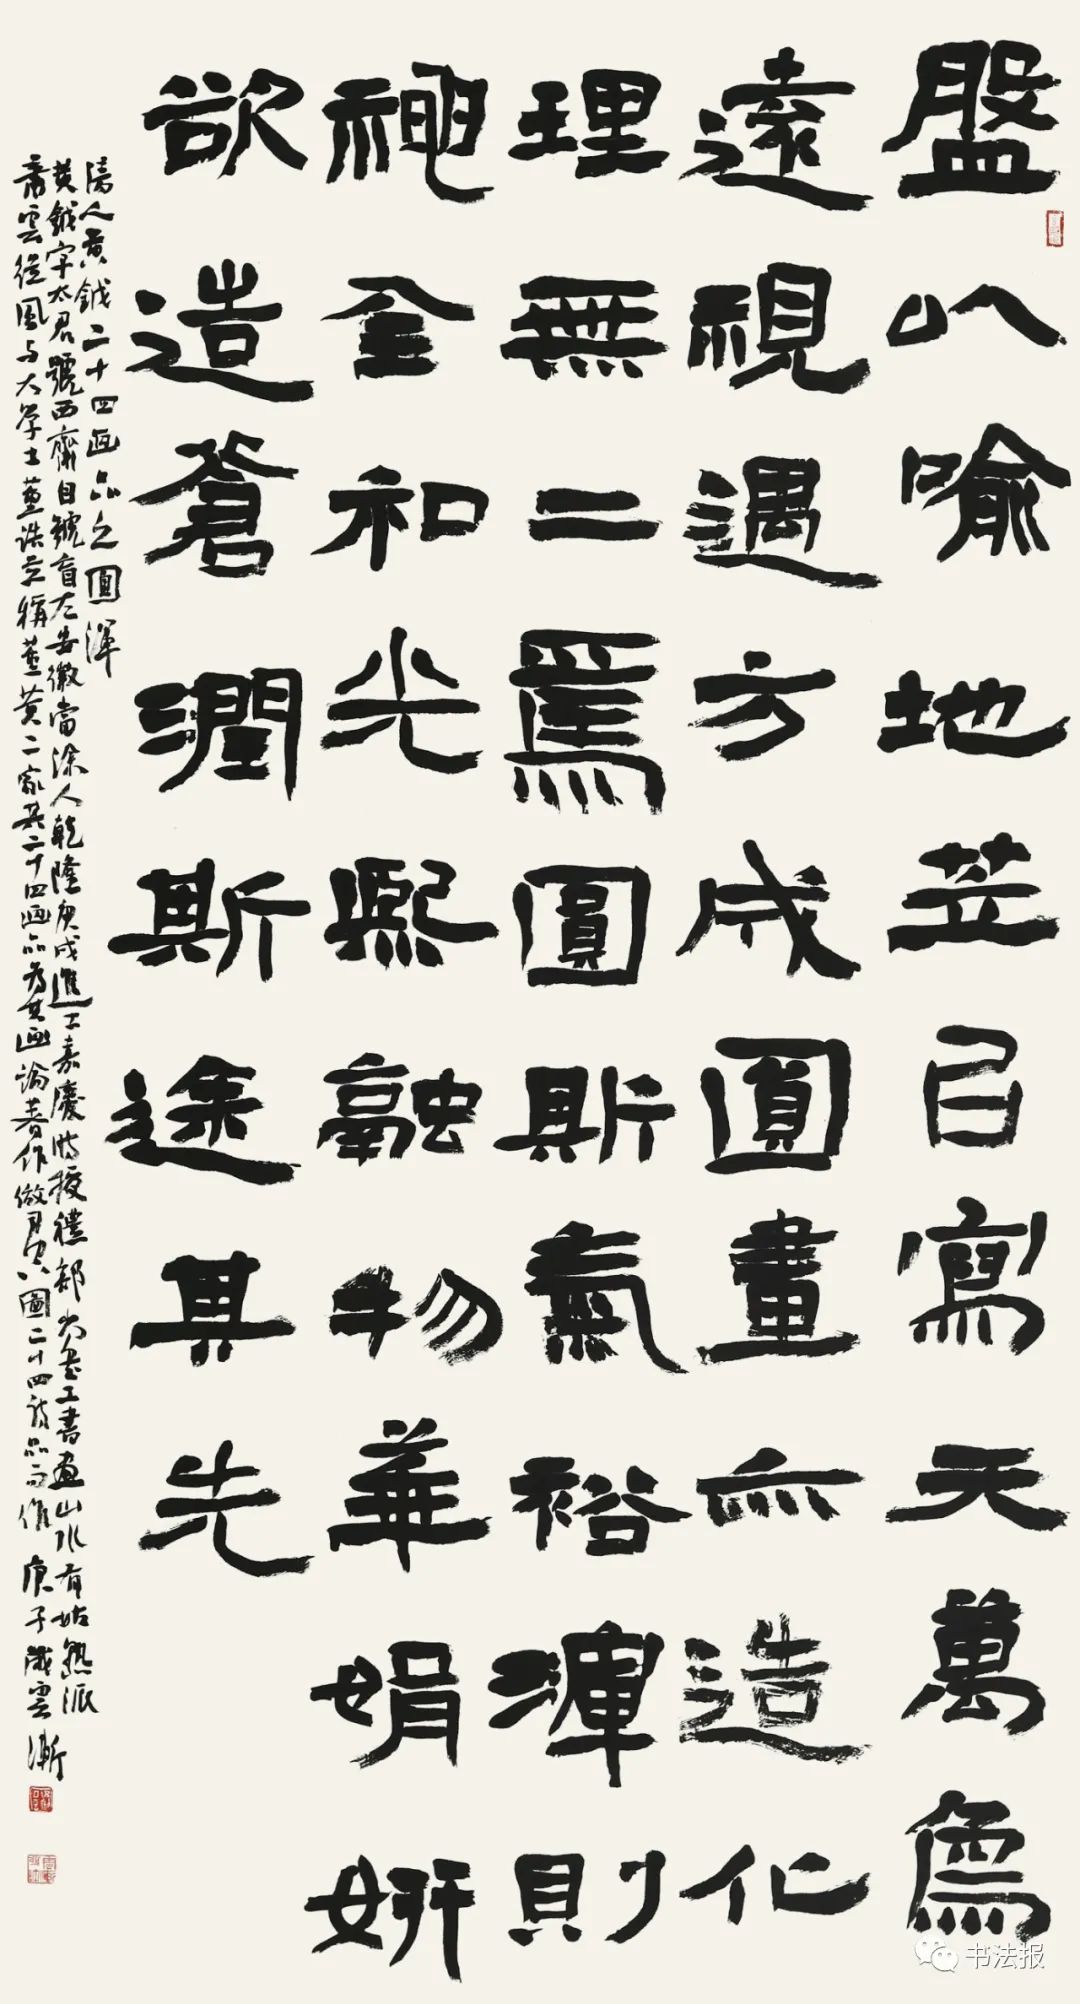 盤以喻地笠㠯寫天萬象
遠視遇方成圓畫亦造化
理無二焉圓斯氣裕渾則
神全和光熙融物華娟妍
欲造蒼潤斯途其先
清人黃鉞二十四画品之圓渾
黃鉞字左君號西齋自號盲左安徽當涂人乾隆庚戌進士嘉慶時授禮部尚書工書画山水有姑熟派
蕭雲從風与大學士董誥並稱董黃二家其二十四画品為其画論著作倣司空圖二十四詩品而作庚子歲雲漸
书法报